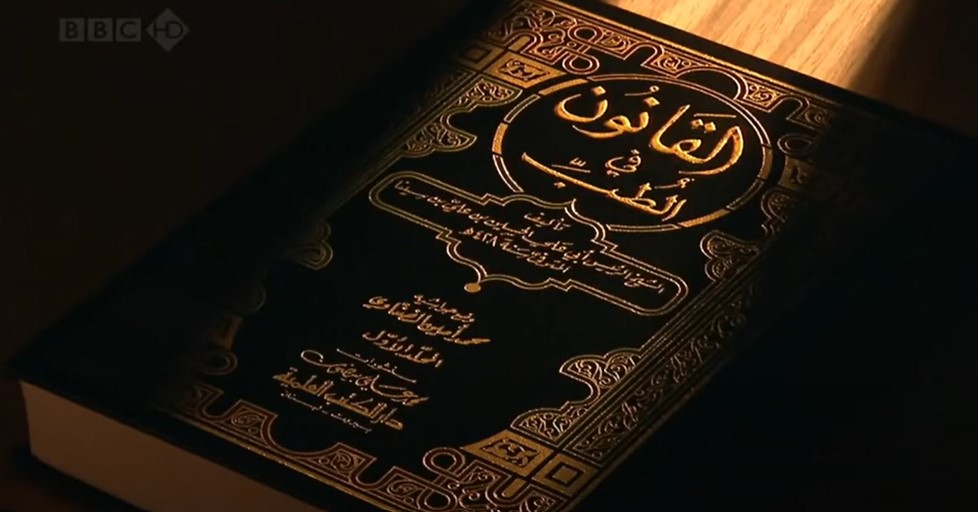 BBC HD
القانون
في
الطب
تأليف
الشيخ الرئيس أبي علي الحسين بن علي بن سينا
المتوفى سنة ٤٢٨ هـ
وضع حواشيه
محمد أمين الضناوي
المجلد الأول
منشورات
محمد علي بيضون
دار الكتب العلمية
بيروت - لبنان